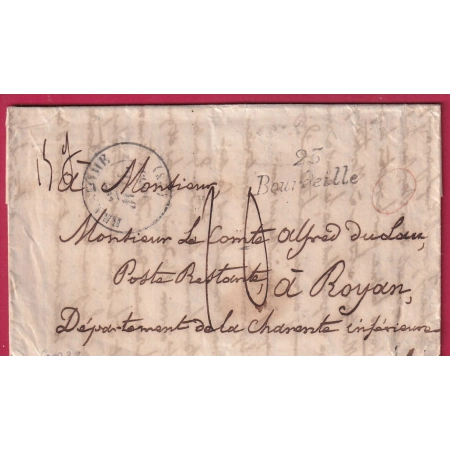 23
Bourdeille
à Monsieur,
Monsieur Le Comte Alfred DuLau,
Poste Restante,
à Royan,
Département de la Charente inférieure